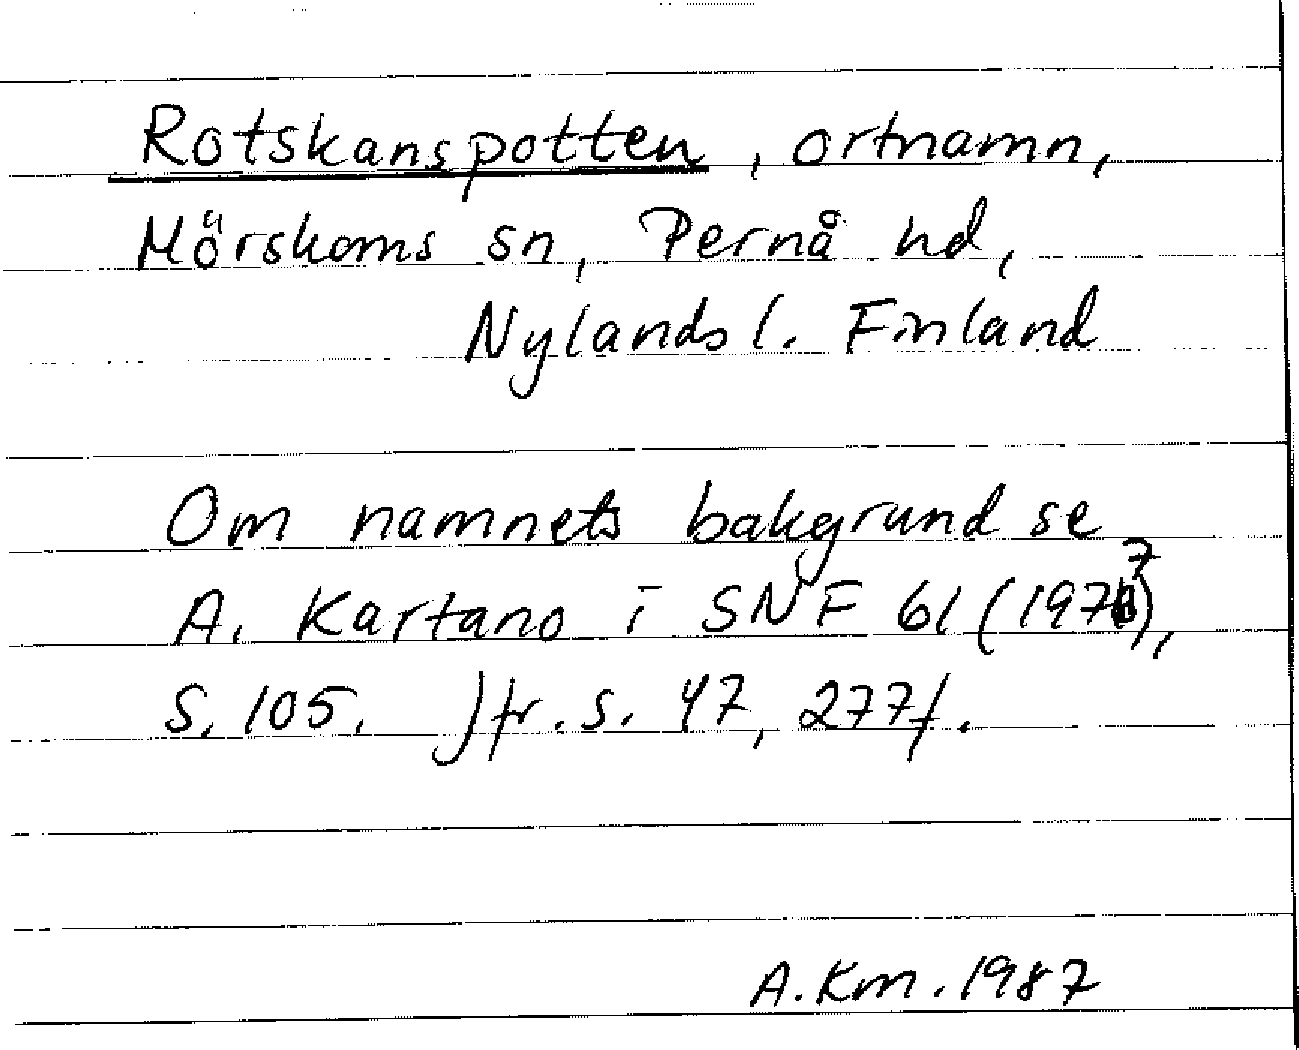 Rotskanspotten, ortnamn,
Mörskoms sn, Pernå hd,
Nylands l. Finland
Om namnets bakgrund se
A. Kartano i SNF 61 (1977),
S. 105. Jfr. s. 47, 277f.
A.Km. 1987